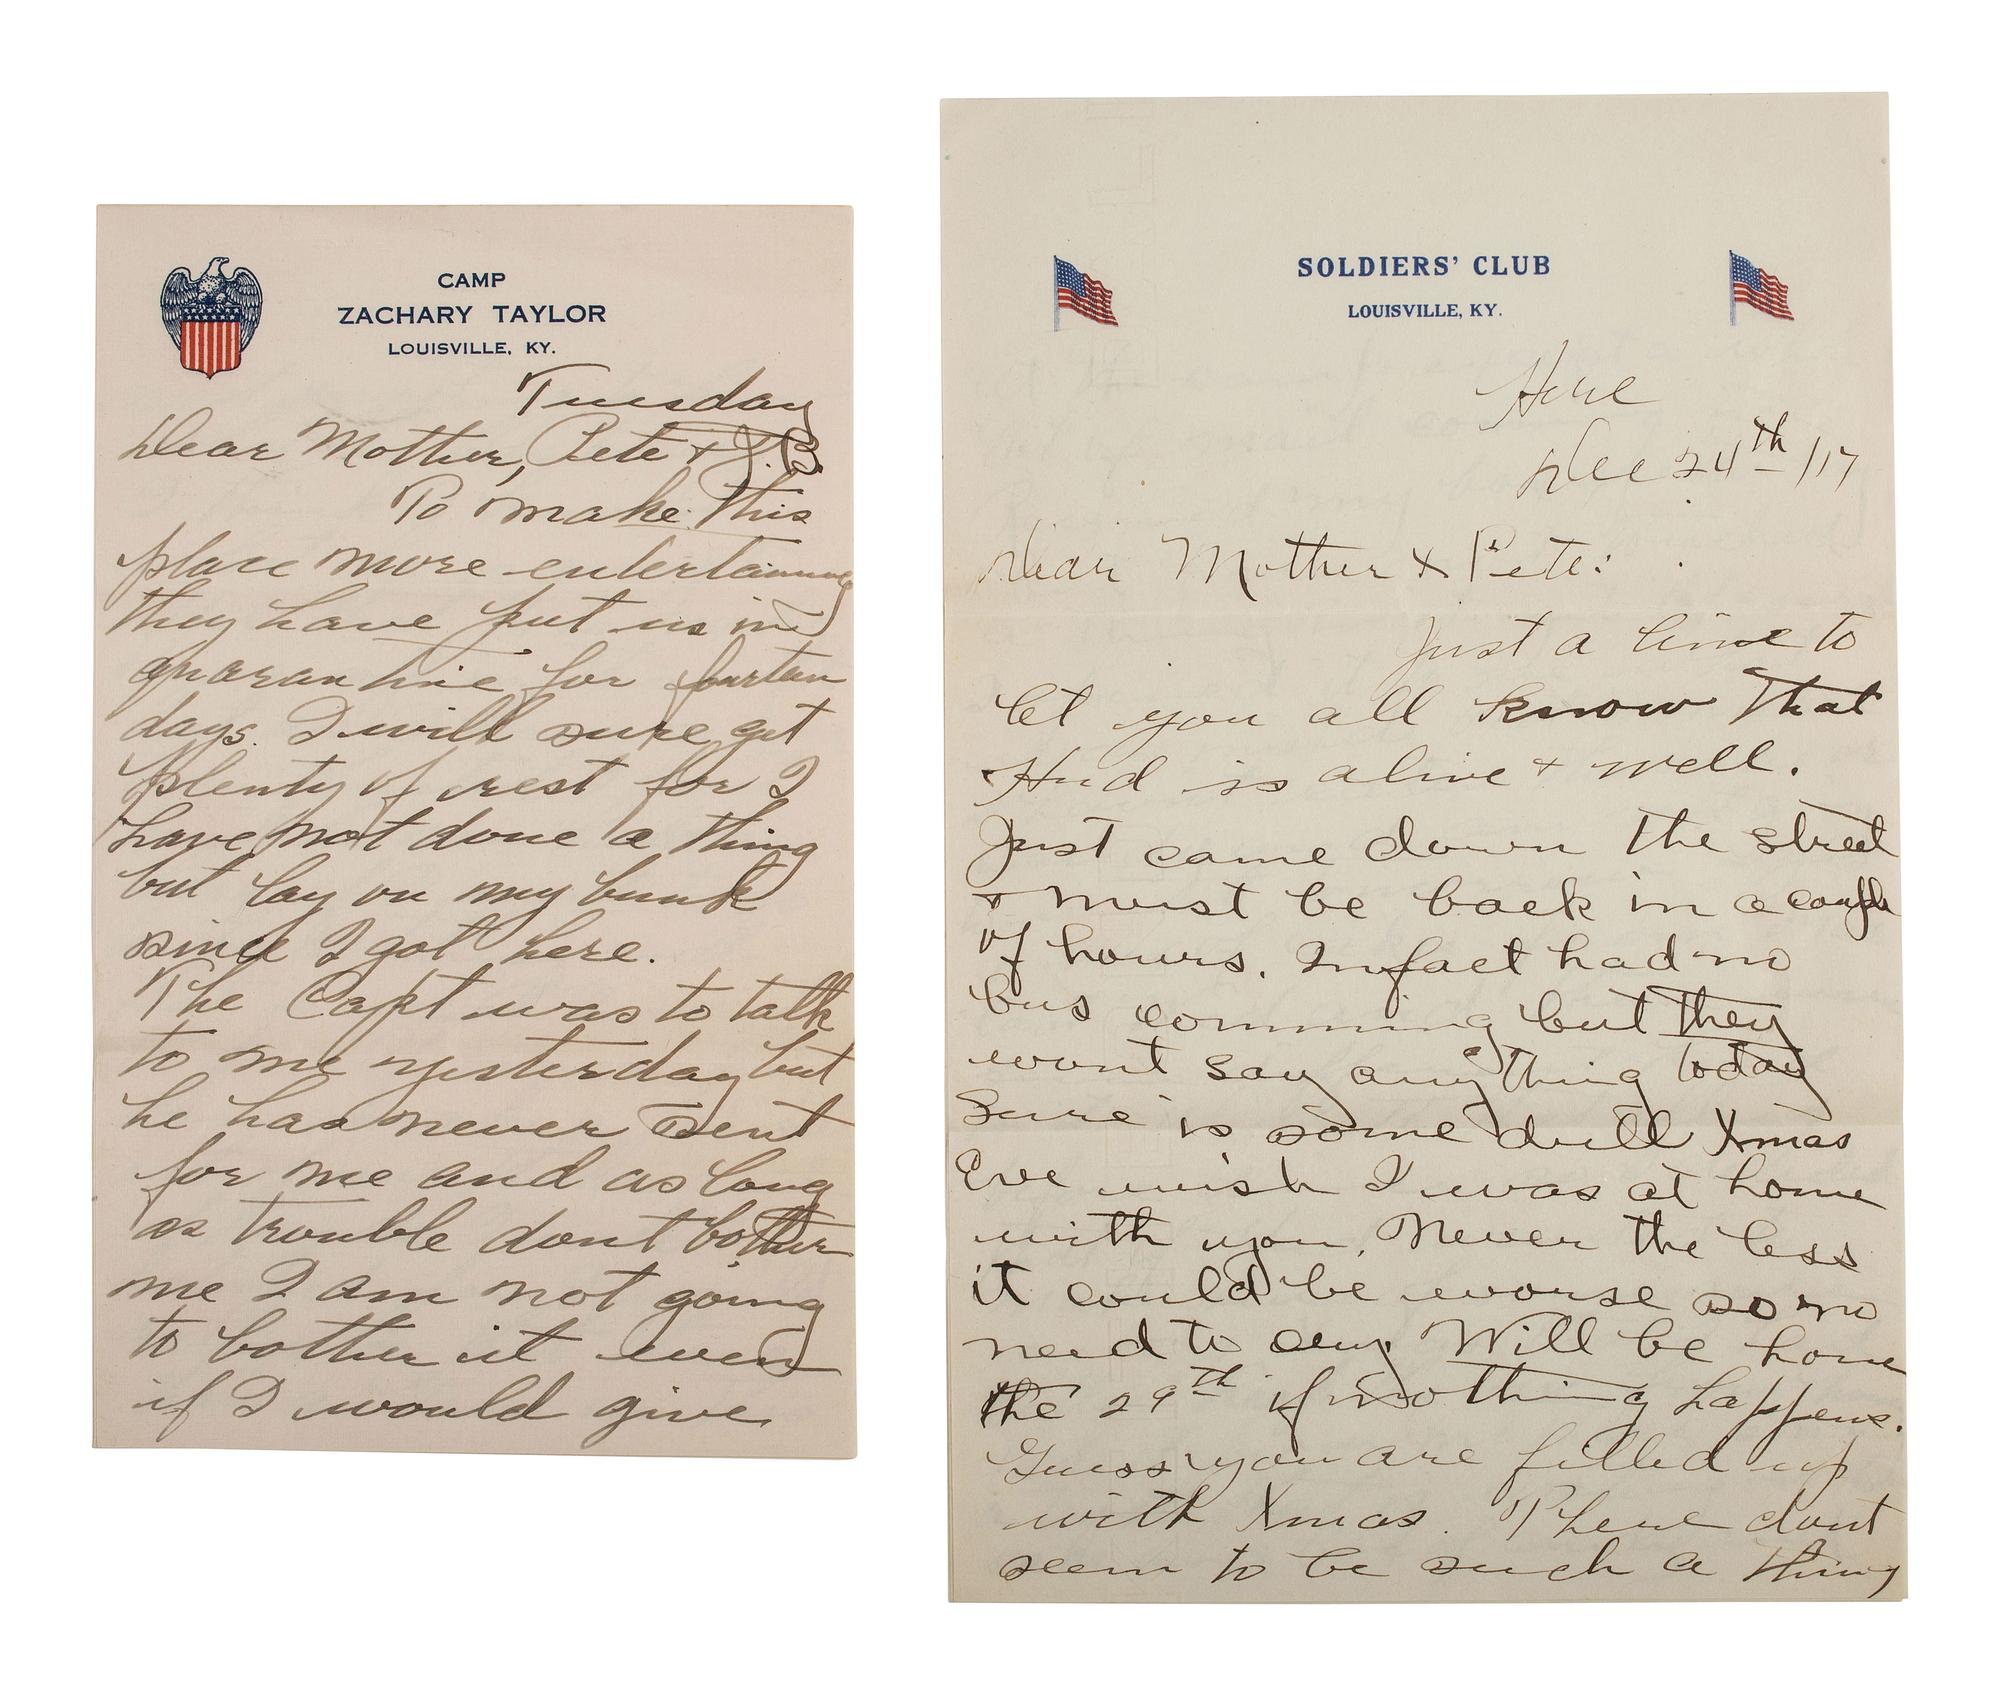 CAMP
ZACHARY TAYLOR
LOUISVILLE, KY.
Tuesday
Dear Mother, Pete & J.B.
To make this
place more entertaining
they have put us in
quarantine for fourteen
days. I will sure get
plenty of rest for I
have not done a thing
but lay on my bunk
since I got here.
The Capt was to talk
to me yesterday but
he has never sent
for me and as long
as trouble dont bother
me I am not going
to bother it even
if I would give
SOLDIERS' CLUB
LOUISVILLE, KY.
Here
Dec 24th /17
Dear Mother & Pete:
Just a line to
let you all know that
Hud is alive & well.
Just came down the street
& must be back in a couple
of hours. Infact had no
bus comming but they
wont say anything today
Sure is some dull Xmas
Eve wish I was at home
with you. Never the less
it could be worse so no
need to cry. Will be home
the 29th if nothing happens.
Guess you are filled up
with Xmas. There dont
seem to be such a thing